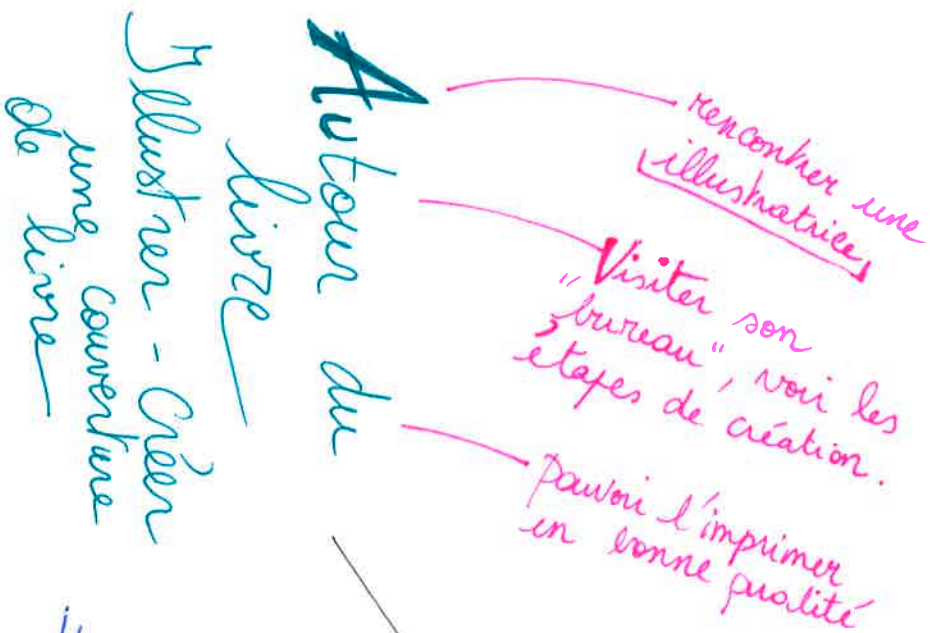 Autour du
livre
Illustrer - Créer
une couverture
de livre
rencontrer une
illustratrice
Visiter son
"bureau", voir les
étapes de création.
pouvoir l'imprimer
en bonne qualité